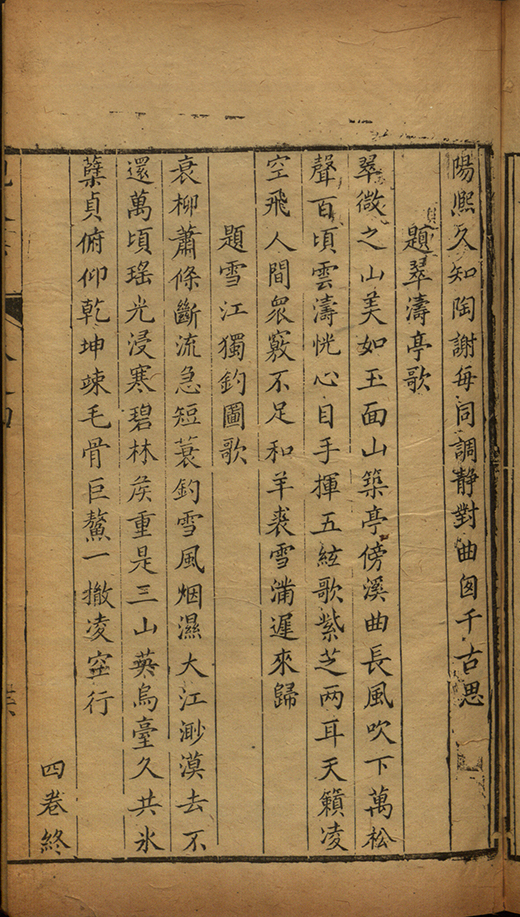 陽熈久知陶謝每同調靜對曲囪千古思
題翠濤亭歌
翠微之山美如玉面山築亭傍溪曲長風吹下萬松
聲百頃雲濤恍心目手揮五絃歌紫芝兩耳天籟凌
空飛人間衆竅不足和羊裘雪滿遲來歸
題雪江獨釣圖歌
衰柳蕭條斷流急短蓑釣雪風烟濕大江渺漠去不
還萬頃瑤光浸寒碧林矦重是三山英烏臺久共氷
蘖貞俯仰乾坤竦毛骨巨鰲一撤凌空行
四卷終